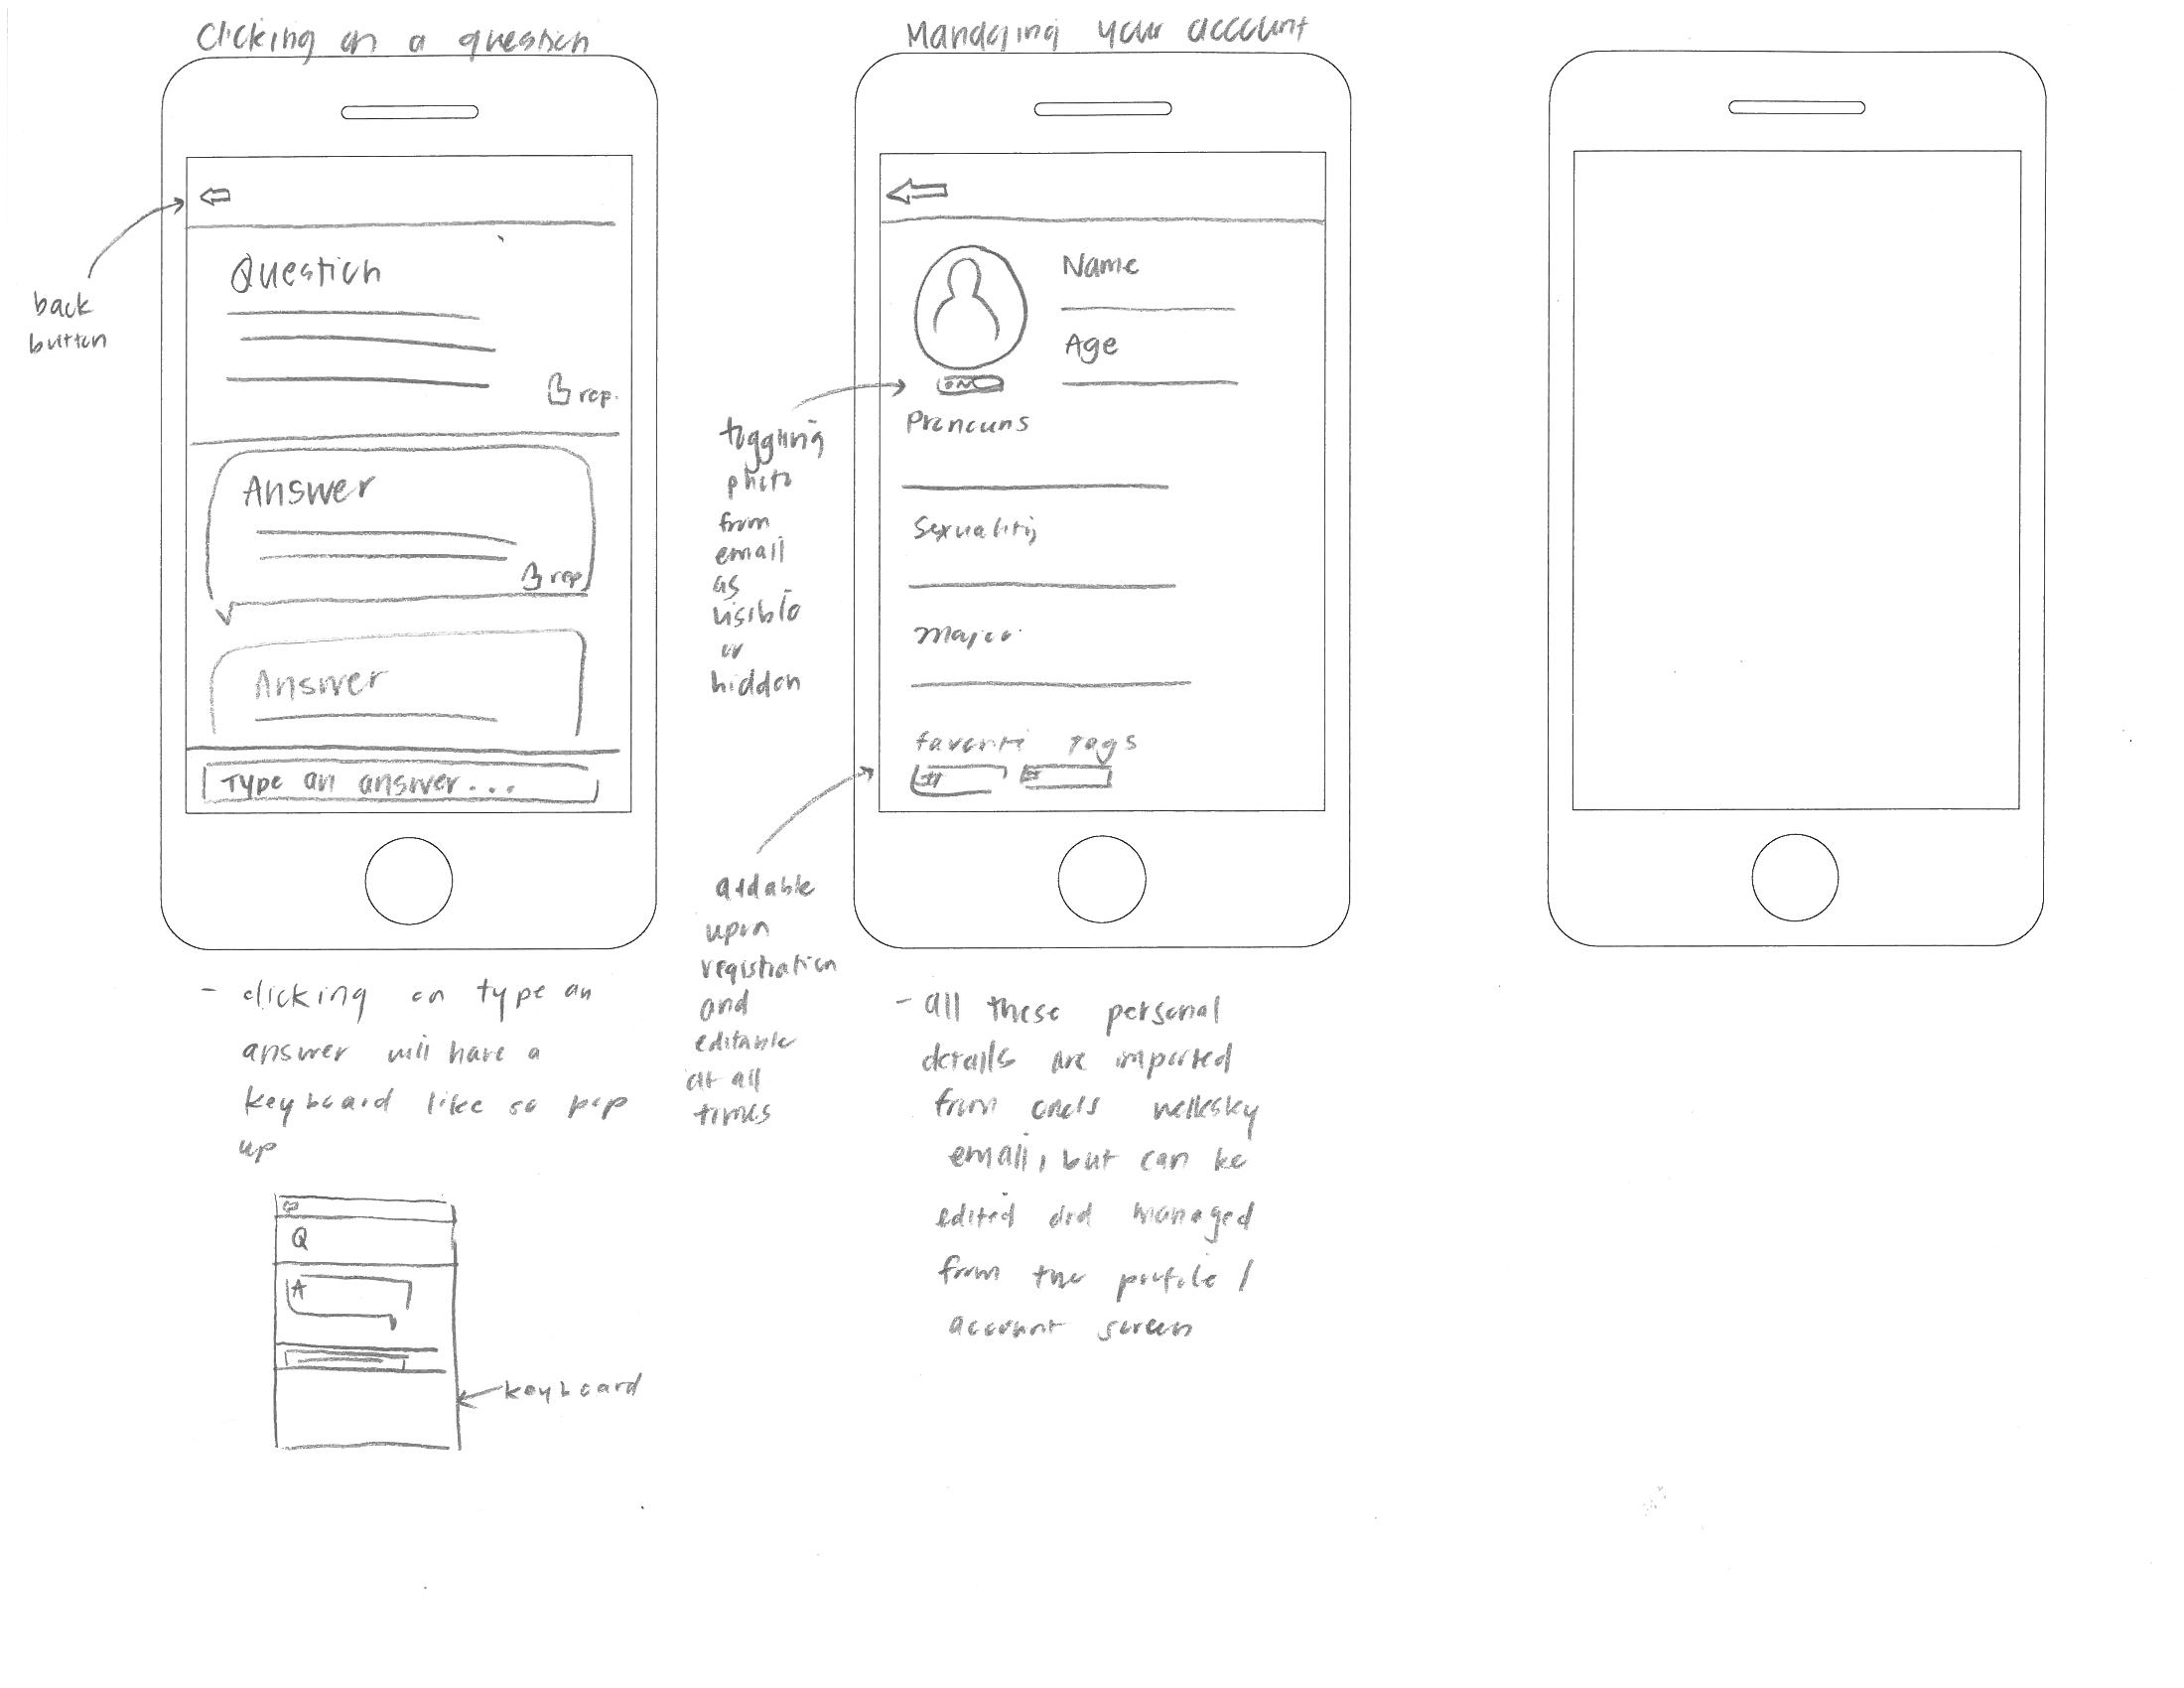 Clicking on a question
back
button
Question
rep.
Answer
rep
Answer
Type an answer...
- clicking on type an
answer will have a
keyboard like so pop
up
Q
A
keyboard
Managing your account
Name
Age
ON
toggling
photo
from
email
as
visible
or
hidden
Pronouns
Sexuality
Major
favorite tags
#
#
addable
upon
registration
and
editable
at all
times
- all these personal
details are imported
from one's wellesley
email, but can be
edited and managed
from the profile /
account screen